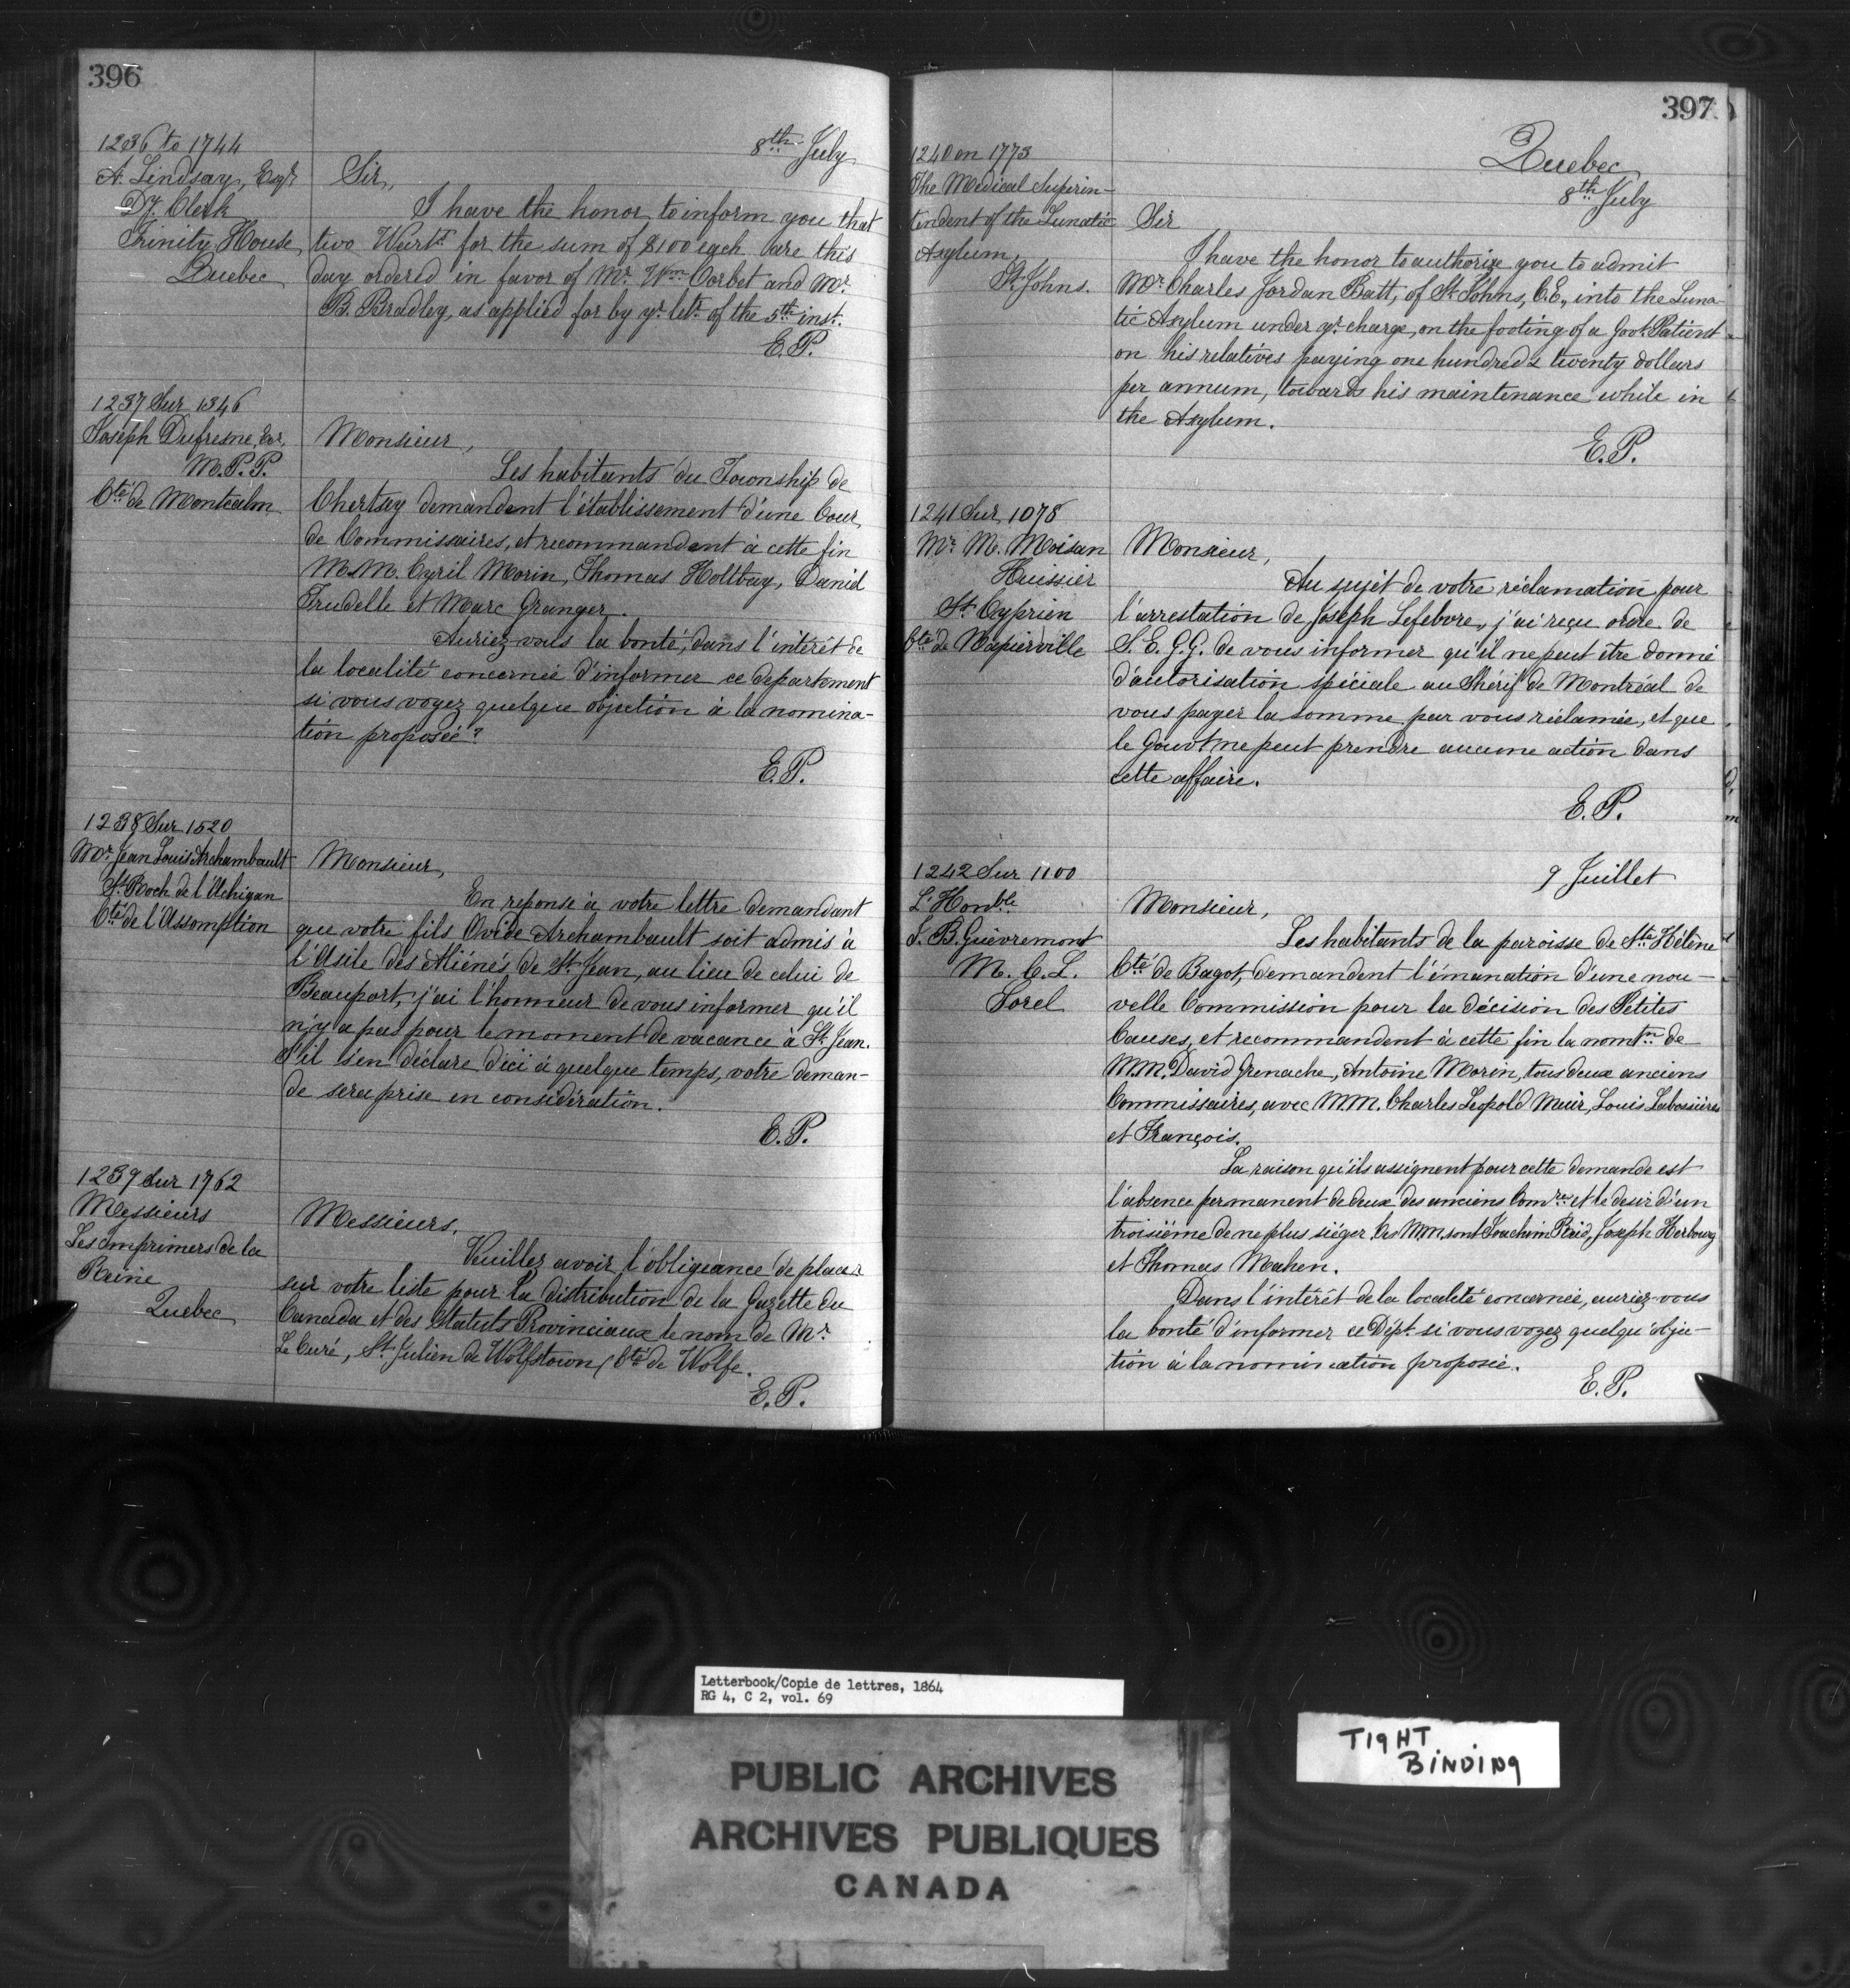 396
1236 to 1744
A. Lindsay, Esqr
Dy. Clerk
Trinity House
Quebec
8th July
Sir,
I have the honor to inform you that
two Warts for the sum of $100 each are this
day ordered in favor of Mr. Wm Corbet and Mr.
B. Bradley, as applied for by yr. letr. of the 5th inst.
E.P.
1237 Sur 1346
Joseph Dufresne, Ecr,
M.P.P.
Cté de Montcalm
Monsieur,
Les habitants du Township de
Chertsey demandent l'établissement d'une Cour
de Commissaires, et recommandent à cette fin
M.M. Cyril Morin, Thomas Holtbay, Daniel
Trudelle et Marc Granger.
Auriez-vous la bonté, dans l'intérêt de
la localité concernée d'informer ce departement
si vous voyez quelque objection à la nomina-
tion proposée?
E.P.
1238 Sur 1520
Mr. Jean Louis Archambault
St. Roch de l'Achigan
Cté de l'Assomption
Monsieur,
En reponse à votre lettre demandant
que votre fils Ovide Archambault soit admis à
l'Asile des Aliénés de St. Jean, au lieu de celui de
Beauport, j'ai l'honneur de vous informer qu'il
n'y a pas pour le moment de vacance à St. Jean.
S'il s'en déclare d'ici à quelque temps, votre deman-
de sera prise en considération.
E.P.
1239 Sur 1762
Messieurs
Les Imprimers de la
Reine
Quebec
Messieurs,
Veuillez avoir l'obligeance de placer
sur votre liste pour la distribution de la Gazette du
Canada et des Statuts Provinciaux le nom de Mr.
Le Curé, St. Julien de Wolfstown, Cté de Wolfe.
E.P.
397
1240 on 1773
The Medical Superin-
tendent of the Lunatic
Asylum,
St. Johns.
Quebec
8th July
Sir
I have the honor to authorize you to admit
Mr. Charles Jordan Batt, of St. Johns, C.E., into the Luna-
tic Asylum under yr. charge, on the footing of a Govt. Patient
on his relatives paying one hundred & twenty dollars
per annum, towards his maintenance while in
the Asylum.
E.P.
1241 Sur 1078
Mr. M. Moisan
Huissier
St. Cyprien
Cté de Napierville
Monsieur,
Au sujet de votre réclamation pour
l'arrestation de Joseph Lefebvre, j'ai reçu ordre de
S.E.G.G. de vous informer qu'il ne peut être donné
d'autorisation spéciale au Shérif de Montréal de
vous payer la somme par vous réclamée, et que
le Gouvt ne peut prendre aucune action dans
cette affaire.
E.P.
1242 Sur 1100
L'Honble
J.B. Guèvremont
M.C.L.
Sorel
9 Juillet
Monsieur,
Les habitants de la paroisse de Ste Hélène
Cté de Bagot, demandent l'émanation d'une nou-
velle Commission pour la décision des Petites
Causes, et recommandent à cette fin la nomtn de
M.M. David Grenache, Antoine Morin, tous deux anciens
Commissaires, avec M.M. Charles Leopold Muir, Louis Labossières
et François.
La raison qu'ils assignent pour cette demande est
l'absence permanent de deux des anciens Comres et le desir d'un
troisième de ne plus siéger. Ces M.M. sont Joachim Reid, Joseph Herbourg
et Thomas Mahen.
Dans l'intérêt de la localité concernée, auriez-vous
la bonté d'informer ce Dépt. si vous voyez quelqu'objec-
tion à la nomination proposée.
E.P.
Letterbook/Copie de lettres, 1864
RG 4, C 2, vol. 69
TIGHT
BINDING
PUBLIC ARCHIVES
ARCHIVES PUBLIQUES
CANADA